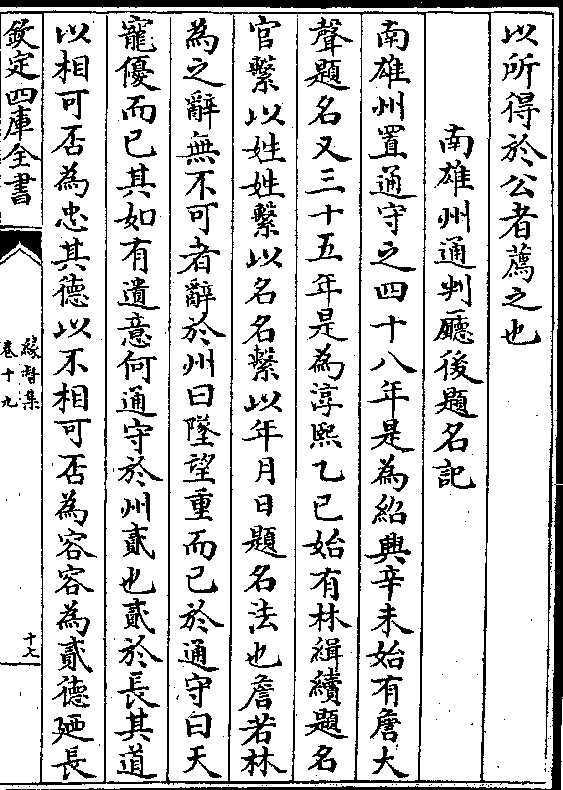 以所得於公者薦之也
南雄州通判廳後題名記
南雄州置通守之四十八年是為紹興辛未始有詹大
聲題名又三十五年是為淳熙乙巳始有林緝續題名
官繫以姓姓繫以名名繫以年月日題名法也詹若林
為之辭無不可者辭於州曰墜望重而已於通守曰天
寵優而已其如有遺意何通守於州貳也貳於長其道
以相可否為忠其德以不相可否為容容為貳德廼長
欽定四庫全書
緣督集
卷十九
十六